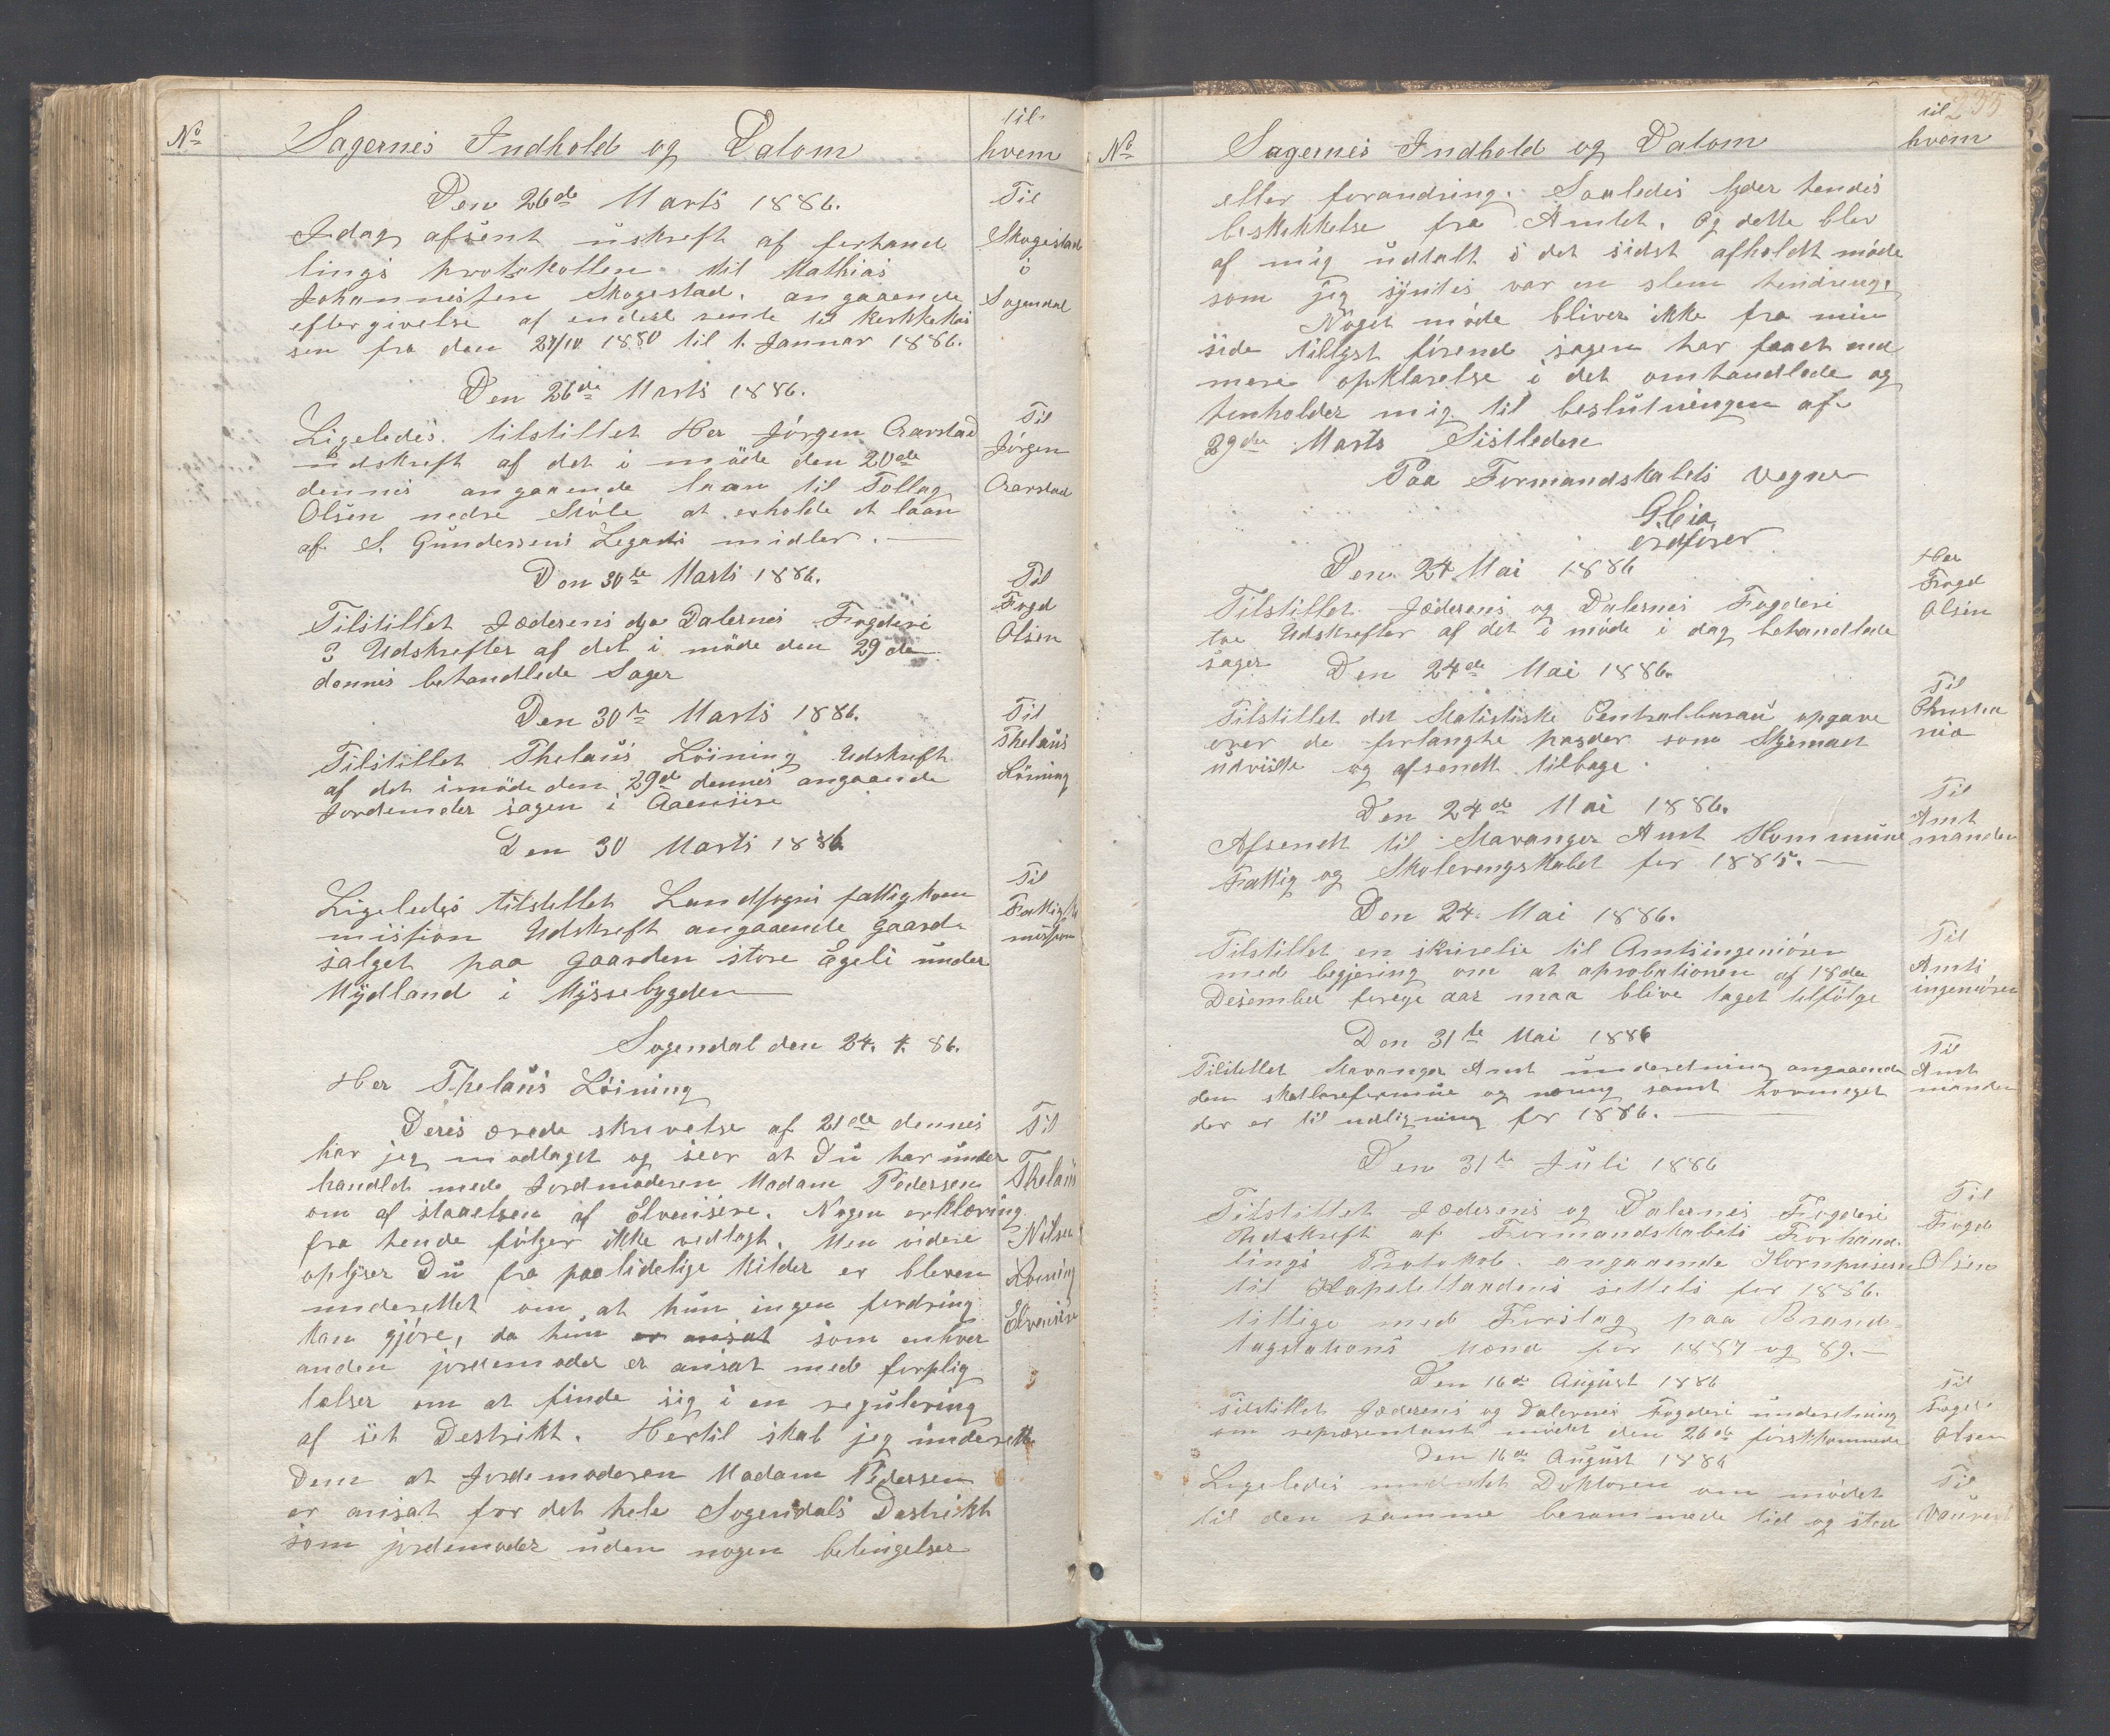 No
Sagernes Indhold og Datom
til
hvem
Den 26de Marts 1886.
Til
Skogestad
i
Sogendal
Idag afsent uskreft af forhand
lings protokollen til Mathias
Johannesen Skogestad. angaaende
eftergivelse af endel rente til kirkekas
sen fra den 28/10 1880 til 1. Januar 1886.
Den 26de Marts 1886.
Til
Jörgen
Aarstad
Ligeledes tilstillet Her Jörgen Aarstad
udskreft af det i möde den 20de
dennes angaaende laan til Tollag
Olsen nedre Skole at erholde et laan
af S. Gundersens Legats midler.
Den 30te Marts 1886.
Til
Fogd
Olsen
Tilstillet Jæderens og Dalernes Fogderi
3 Udskrefter af det i möde den 29de
dennes behandlede Sager
Den 30te Marts 1886.
Til
Thelaus
Löining
Tilstillet Thelaus Löining Udskreft
af det i möde den 29de dennes angaaende
Jordemoder sagen i Aaensire
Den 30 Marts 1886
Til
Fattigko
mission
Ligeledes tilstillet Landsogns fattigkom
mission Udskreft angaaende gaards
salget paa gaarden store Egeli under
Mydland i Myssebygden
Sogendal den 24. 4. 86.
Her Thelaus Löining
Til
Thelaus
Nilsen
Löining
Elvensire
Deres ærede skrivelse af 21de dennes
har jeg modtaget og seer at Du har under
handlet med Jordmoderen Madam Pedersen
om af staaelsen af Elvensire. Nogen erklæring
fra hende fölger ikke vedlagt. Men videre
oplyser Du fra paalidelige kilder er bleven
underettet om at hun ingen fordring
kan gjöre, da hun er ansat som enhver
anden jordemoder er ansat med forplig
telser om at finde sig i en regulering
af sit Destrikt. Hertil skal jeg underette
Dem at Jordemoderen Madam Pedersen
er ansat for det hele Sogendals Destrikt
som jordemoder uden nogen betingelser
No
Sagernes Indhold og Datom
til
hvem
eller forandring. Saaledes lyder hendes
beskikkelse fra Amtet. Og dette blev
af mig udtalt i det sidst afholdt möde
som jeg syntes var en slem hindring.
Noget möde bliver ikke fra min
side tillyst förend sagen har faaet
mere opklarelse i det omhandlede og
henholder mig til beslutningen af
29de Marts Sistleden
Paa Formandskabets Vegne
ordförer
Den 24 Mai 1886
Her
Fogd
Olsen
Tilstillet Jæderens og Dalernes Fogderi
toe Udskrefter af det i möde i dag behandlede
sager
Den 24de Mai 1886.
Til
Christia
nia
Tilstillet det Statistiske Centralbureau opgave
over de forlangte poster som Skjemaet
udviste og afsendt tilbage.
Den 24de Mai 1886.
Til
Amt
manden
Afsendt til Stavanger Amt Kommune
Fattig og Skoleregnskabet for 1885.
Den 24. Mai 1886.
Til
Amts
ingeniören
Tilstillet en skrivelse til Amtsingeniören
med begjæring om at aprobationen af 18de
Desember forrige aar maa blive taget tilfölge
Den 31te Mai 1886
Til
Amt
manden
Tilstillet Stavanger Amt underetning angaaende
den skatbareformue og næring samt hvormeget
der er til udligning for 1886.
Den 31te Juli 1886
Til
Fogd
Olsen
Tilstillet Jæderens og Dalernes Fogderi
Udskreft af Formandskabets Forhand
lings Protokol. angaaende Kornprisen
til Kapitelstandens settels for 1886.
tillige med Forslag paa Brand-
tagstations Mænd for 1887 og 89.
Den 16de August 1886
Til
Fogd
Olsen
Tilstillet Jæderens og Dalernes Fogderi underetning
om repræsentant mödet den 26de förstkommende
Den 16de August 1886
Til
Ligeledes Doktoren om mödet
til den samme berammede tid og sted